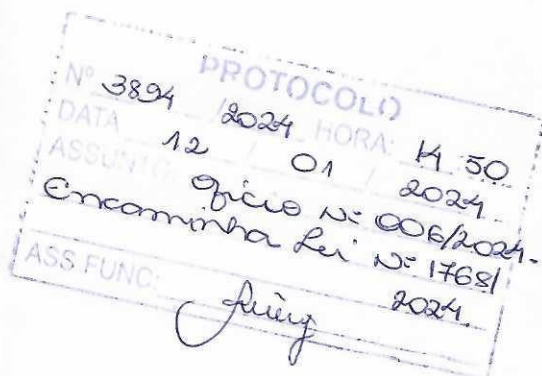 PROTOCOLO
Nº 3894 / 2024 HORA: 14 50
DATA 12 / 01 / 2024
ASSUNTO: Ofício Nº 006/2024-
Encaminha Lei Nº 1768/
2024.
ASS FUNC: